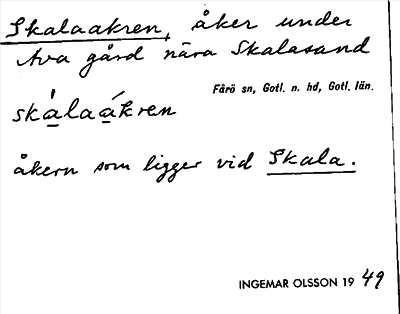 Skalaakren, åker under
Ava gård nära Skalasand
Fårö sn, Gotl. n. hd, Gotl. län.
skàlaákren
åkern som ligger vid Skala.
INGEMAR OLSSON 1949